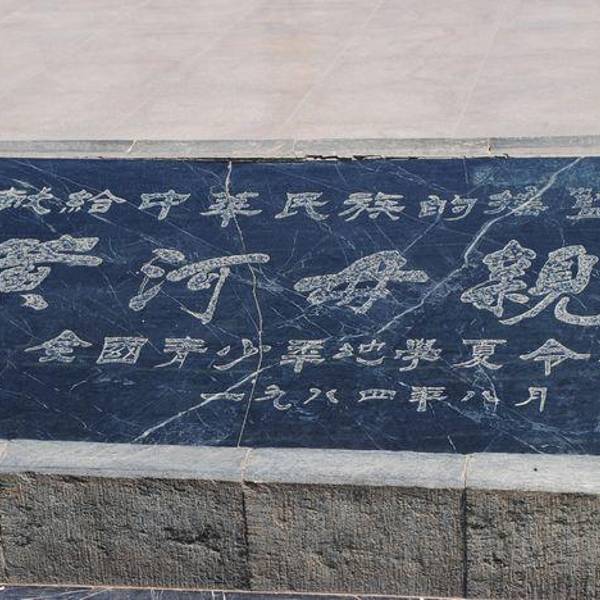 献给中华民族的摇篮
黄河母親
全國青少年地學夏令
一九八四年八月